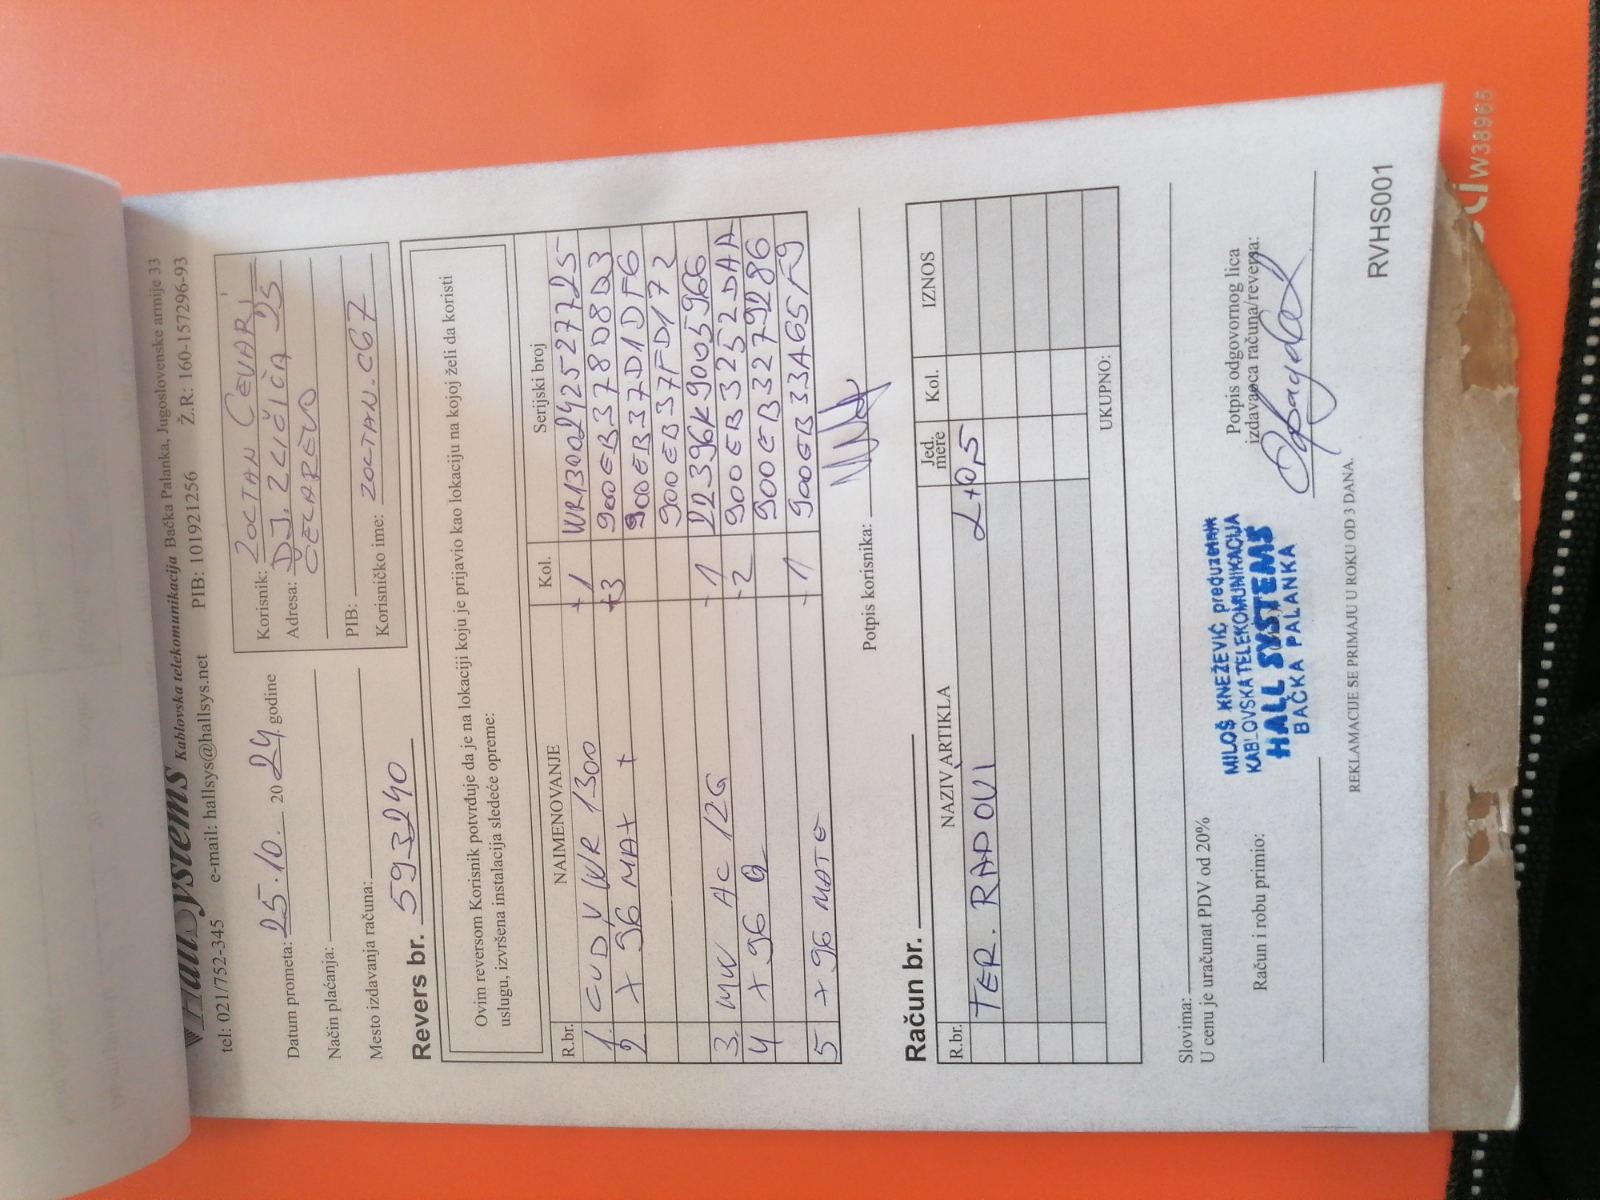 HallSystems Kablovska telekomunikacija Bačka Palanka, Jugoslovenske armije 33
tel: 021/752-345 e-mail: hallsys@hallsys.net PIB: 101921256 Ž.R.: 160-157296-93
Datum prometa: 25.10. 2024 godine
Način plaćanja:
Mesto izdavanja računa:
Korisnik: ZOLTAN
Adresa: DJ. ZLIČIĆA 25
ČELAREVO
PIB:
Korisničko ime: ZOLTAN.C67
Revers br. 593240
Ovim reversom Korisnik potvrđuje da je na lokaciji koju je prijavio kao lokaciju na kojoj želi da koristi
uslugu, izvršena instalacija sledeće opreme:
R.br. NAIMENOVANJE Kol. Serijski broj
1. CUDY WR 1300 +1 WR1300242527725
2 X 96 MAX + +3 900EB37808D3
900EB37D1DF6
900EB37FD172
3. MW AC 12G -1 22396K9005966
4 X 96 Q -2 900EB3252DAA
900EB3279286
5 X 96 MATE -1 900EB33A65F9
Potpis korisnika:
Račun br.
R.br. NAZIV ARTIKLA Jed. mere Kol. IZNOS
TER. RADOVI L+0,5
UKUPNO:
Slovima:
U cenu je uračunat PDV od 20%
Račun i robu primio:
MILOŠ KNEŽEVIĆ preduzetnik
KABLOVSKA TELEKOMUNIKACIJA
HALL SYSTEMS
BAČKA PALANKA
Potpis odgovornog lica
izdavaoca računa/reversa:
REKLAMACIJE SE PRIMAJU U ROKU OD 3 DANA.
RVHS001
W38965